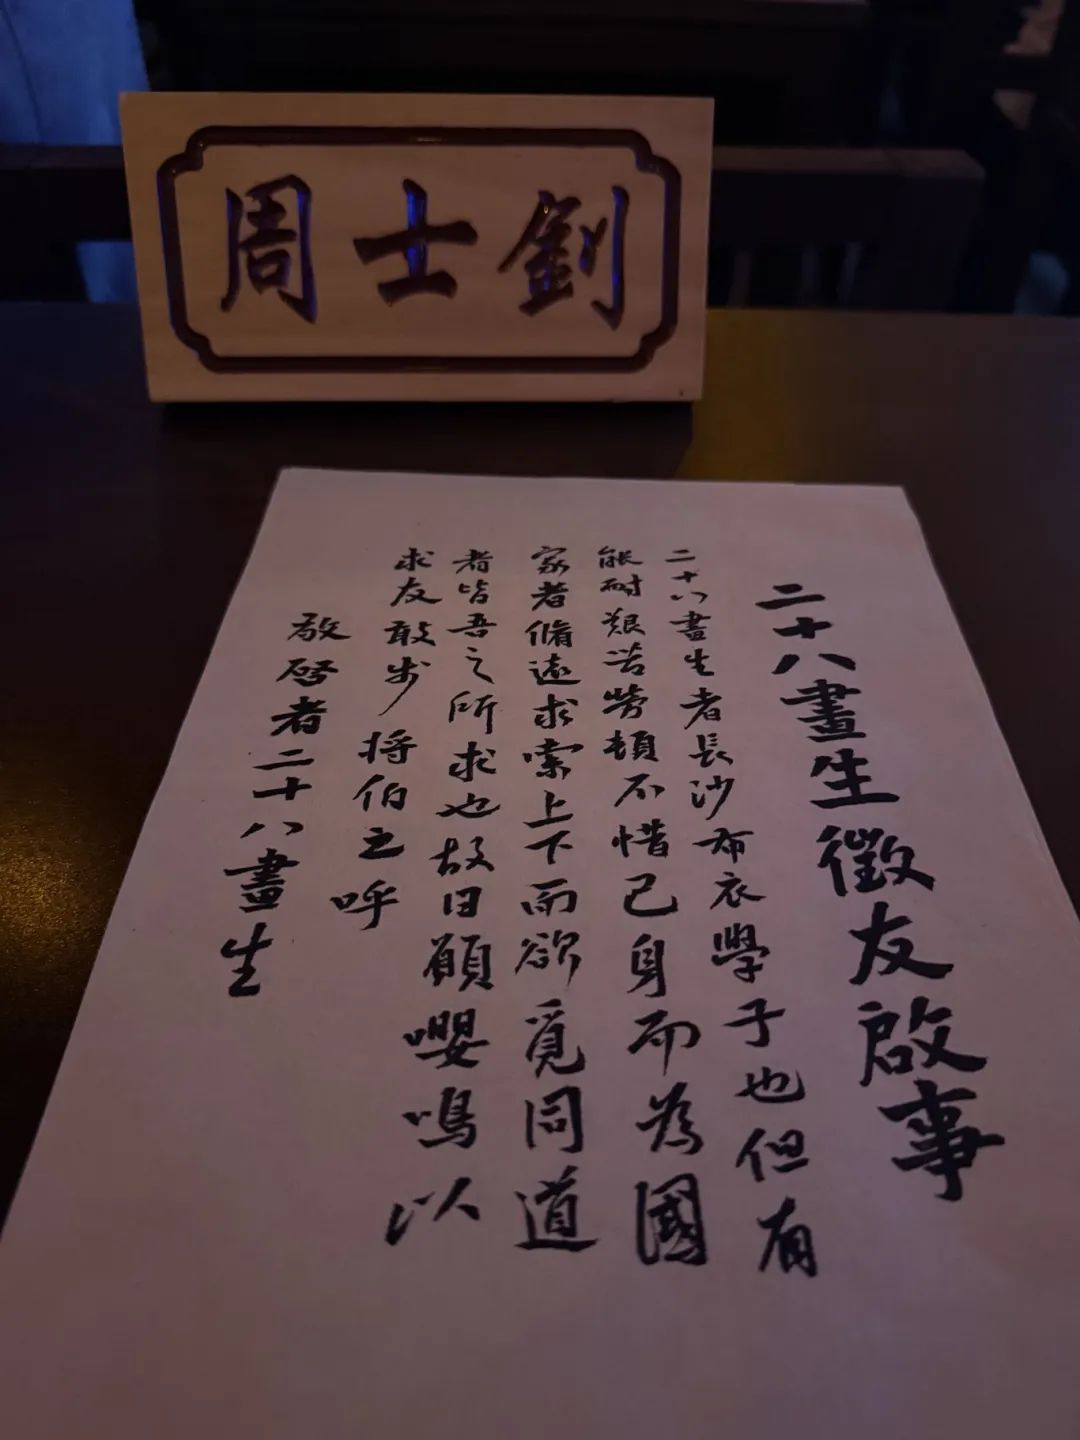 周士釗
二十八畫生徵友啟事
二十八畫生者長沙布衣學子也但有
能耐艱苦勞頓不惜己身而為國
家者脩遠求索上下而欲覓同道
者皆吾之所求也故曰願嚶鳴以
求友敢步將伯之呼
敬啓者二十八畫生